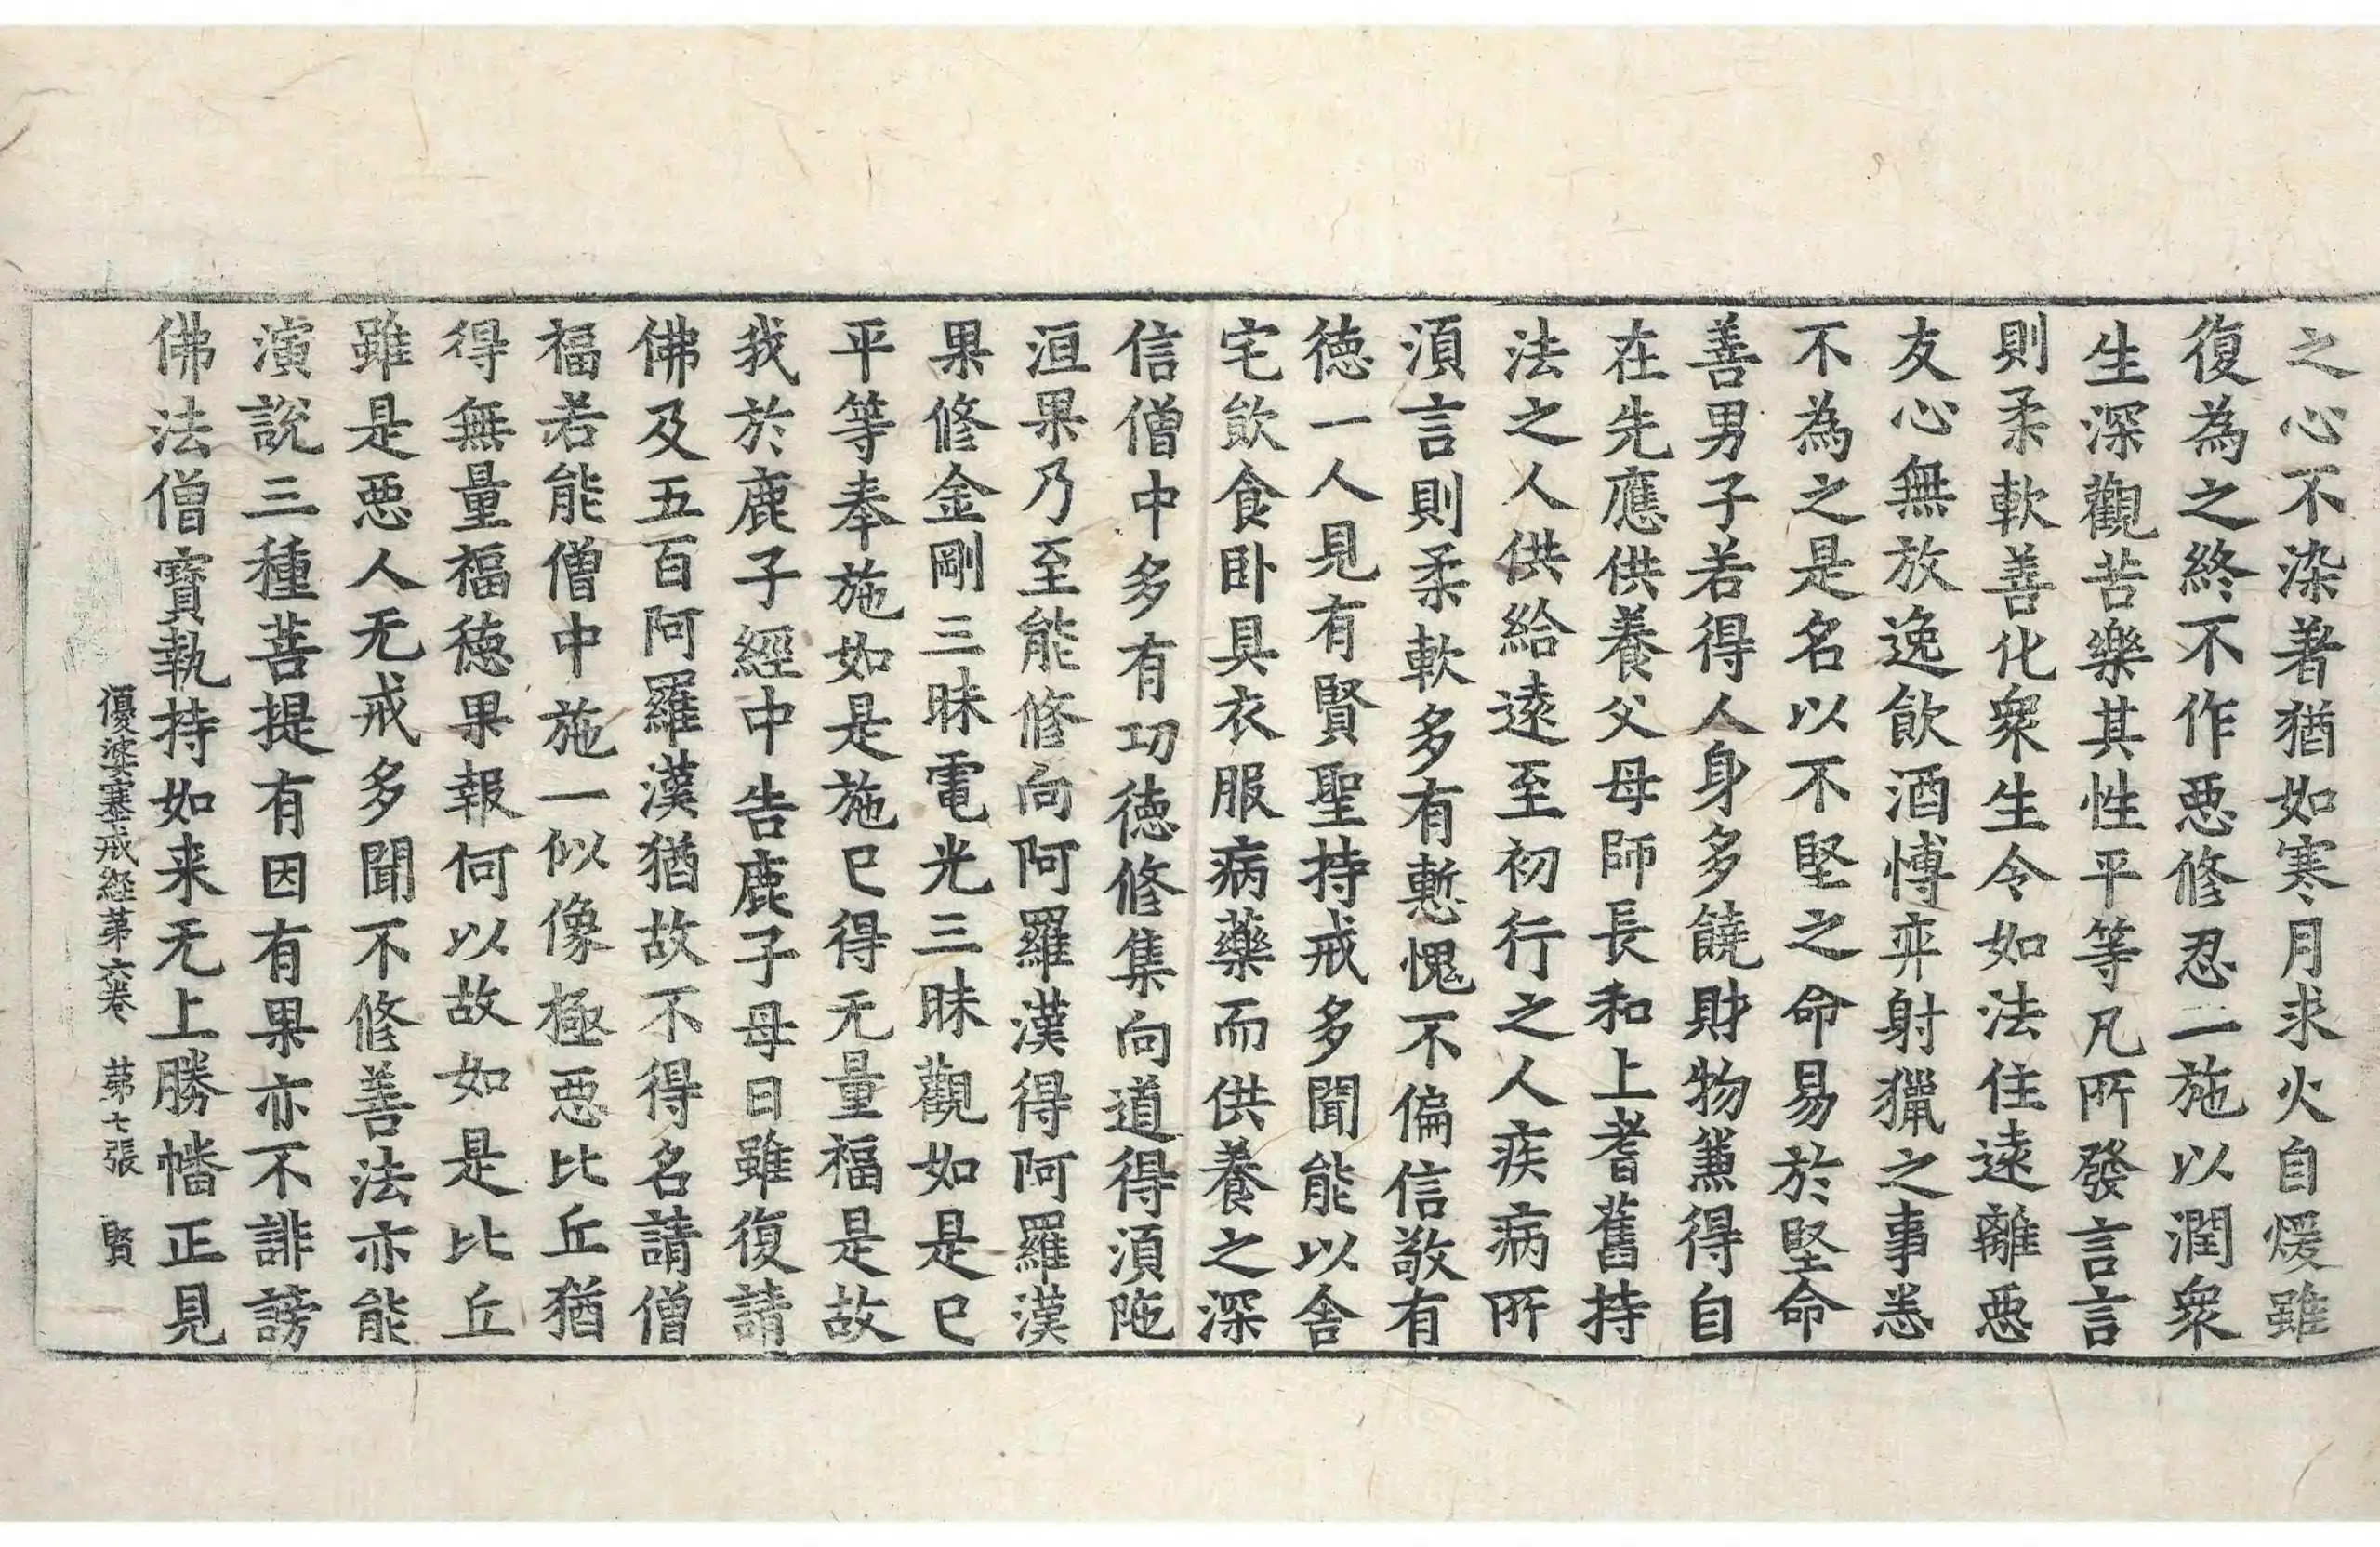 之心不染著猶如寒月求火自煖雖
復為之終不作惡修忍二施以潤衆
生深觀苦樂其性平等凡所發言言
則柔軟善化衆生令如法住遠離惡
友心無放逸飲酒愽弈射獵之事悉
不為之是名以不堅之命易於堅命
善男子若得人身多饒財物薫得自
在先應供養父母師長和上耆舊持
法之人供給遠至初行之人疾病所
湏言則柔軟多有慙愧不偏信敬有
徳一人見有賢聖持戒多聞能以舍
宅飲食卧具衣服病藥而供養之深
信僧中多有功徳修集向道得湏陁
洹果乃至能修向阿羅漢得阿羅漢
果修金剛三昧電光三昧觀如是已
平等奉施如是施已得无量福是故
我於鹿子經中告鹿子母曰雖復請
佛及五百阿羅漢猶故不得名請僧
福若能僧中施一似像極惡比丘猶
得無量福徳果報何以故如是比丘
雖是惡人无戒多聞不修善法亦能
演說三種菩提有因有果亦不誹謗
佛法僧寶執持如来无上勝幡正見
優婆塞戒經苐六卷 苐七張 賢